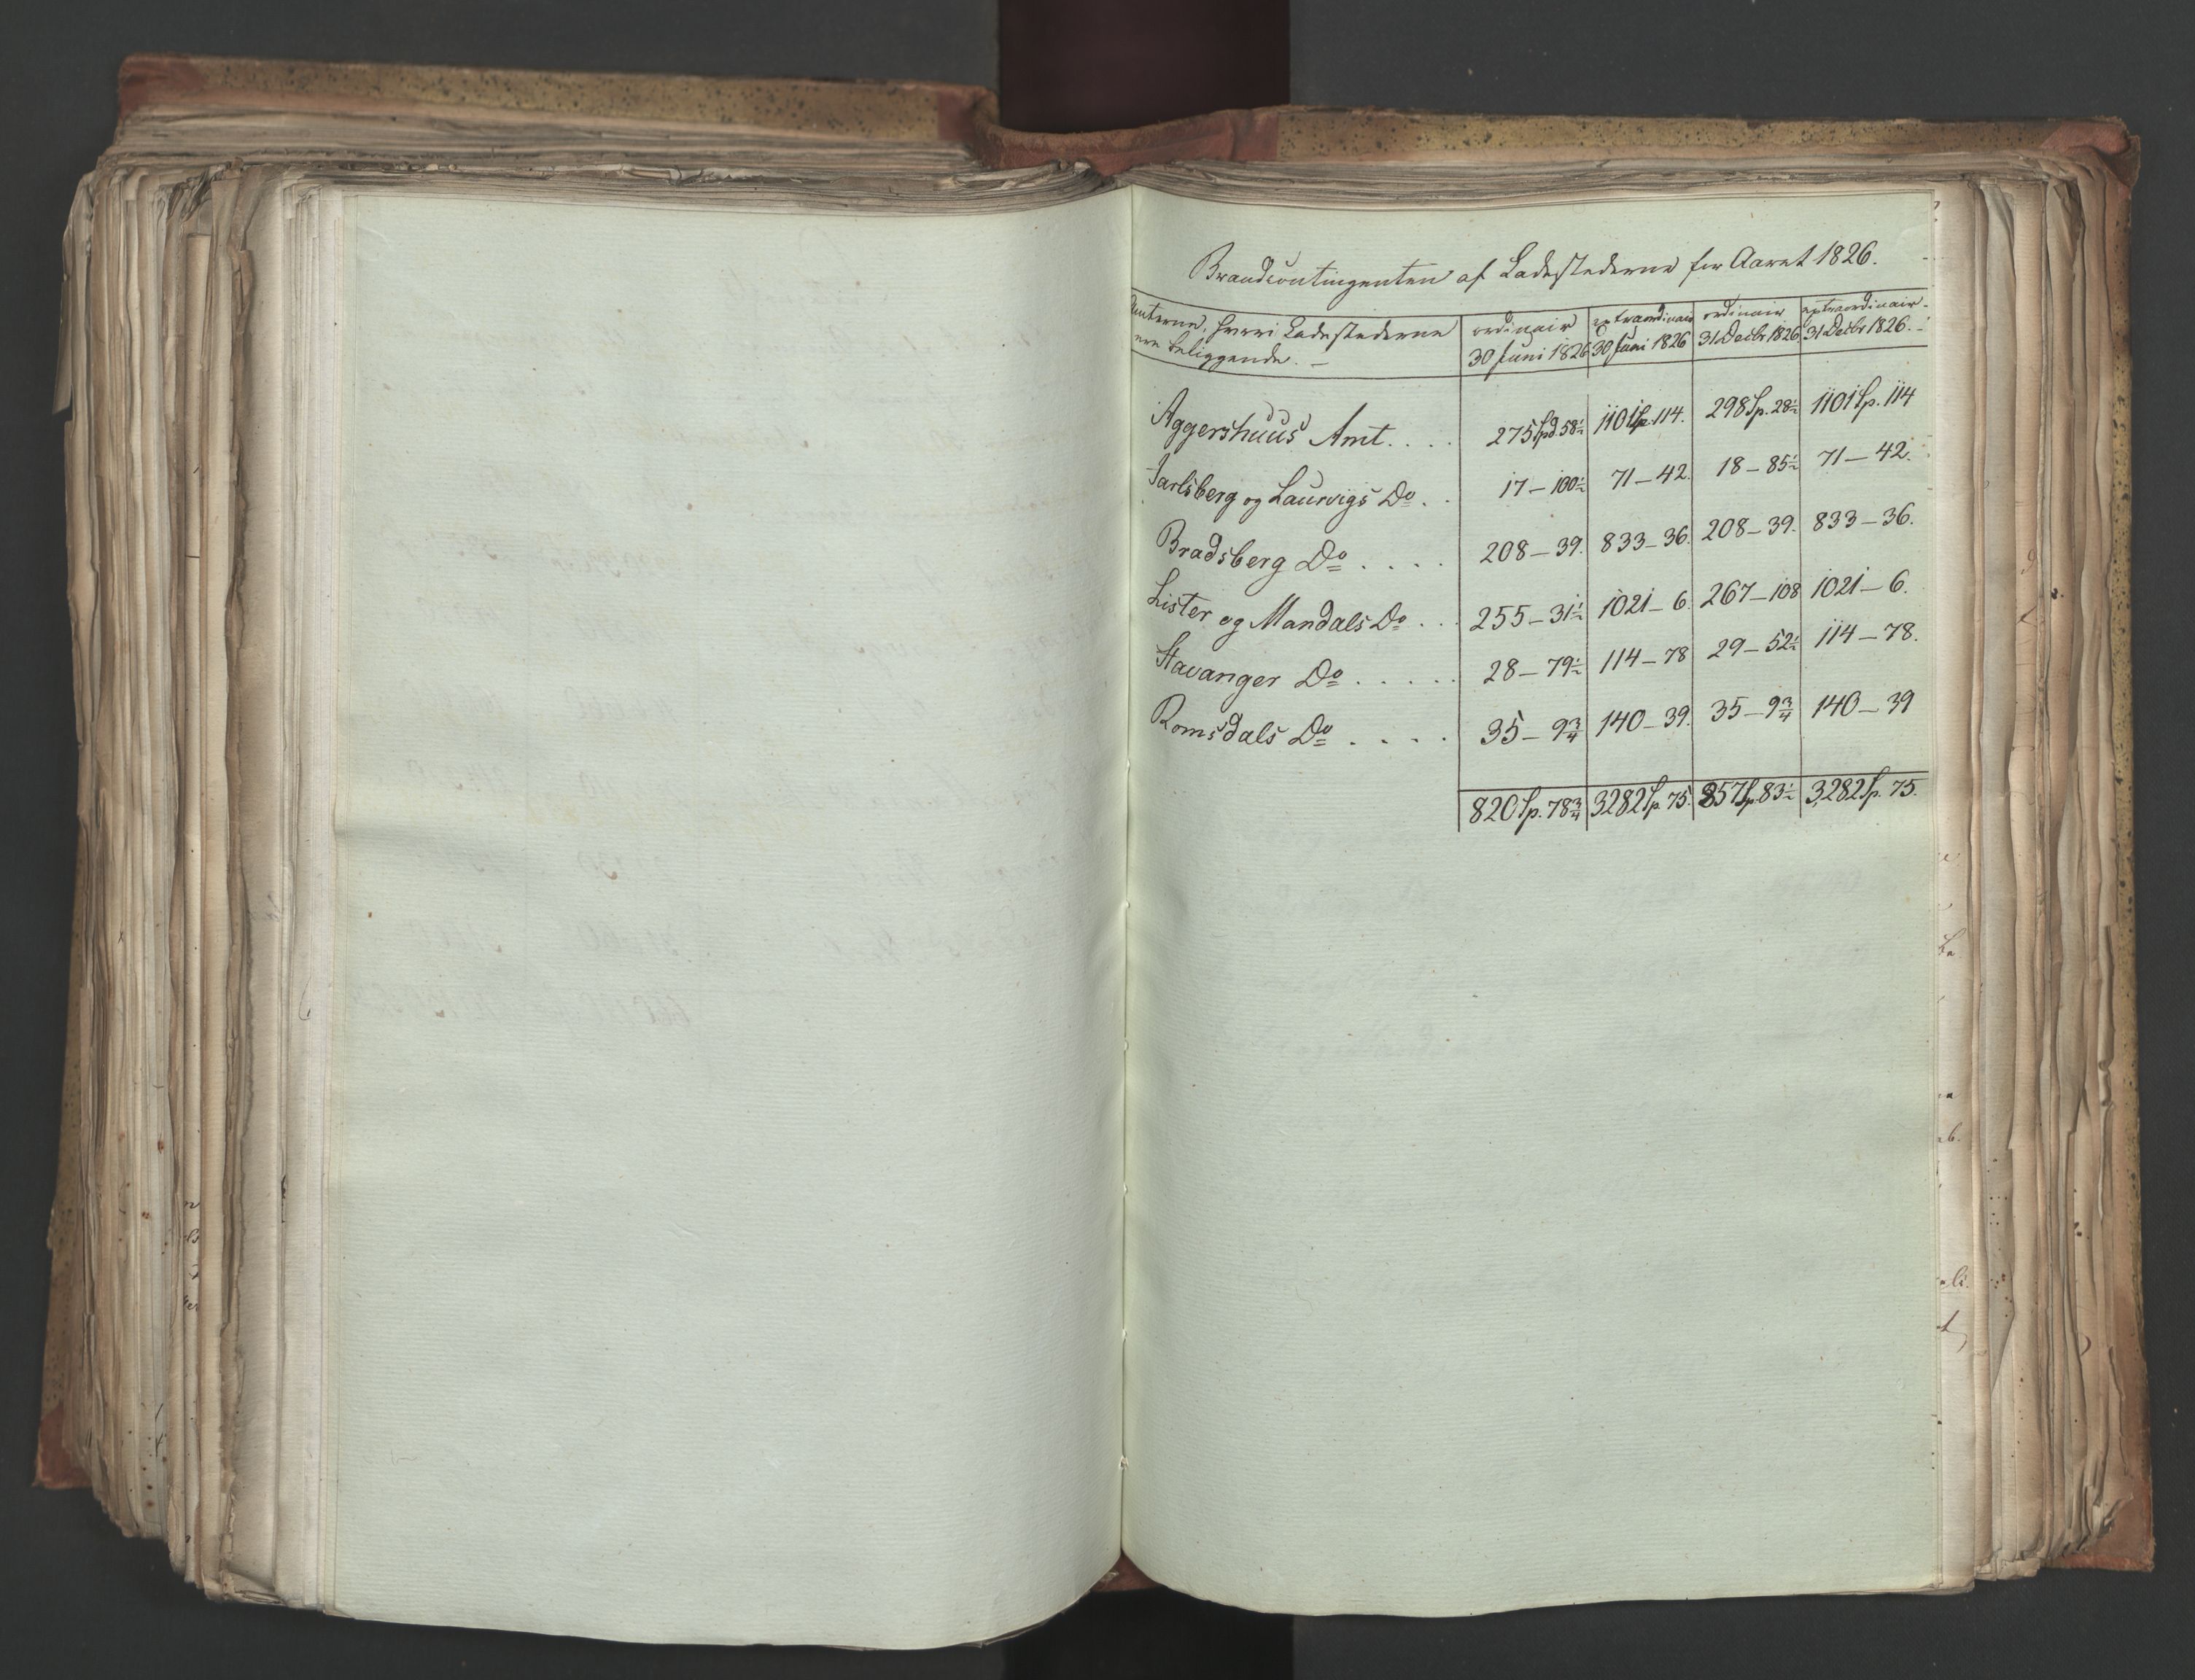 Brandcontingenten af Ladestederne for Aaret 1826.
Amterne, hvori Ladestederne ere beliggende. — | ordinair 30 Juni 1826 | extraordinair 30 Juni 1826 | ordinair 31 Decbr 1826 | extraordinair 31 Decbr 1826. —
Aggershuus Amt. . . . | 275 Spd. 58½ | 1101 Sp. 114. | 298 Sp. 28½ | 1101 Sp. 114
Jarlsberg og Laurvigs Do . . | 17 — 100½ | 71 — 42. | 18 — 85½ | 71 — 42.
Bradsberg Do . . . . | 208 — 39. | 833 — 36. | 208 — 39. | 833 — 36.
Lister og Mandals Do . . . | 255 — 31½ | 1021 — 6. | 267 — 108 | 1021 — 6.
Stavanger Do . . . . . | 28 — 79½ | 114 — 78 | 29 — 52½ | 114 — 78.
Romsdals Do . . . . | 35 — 9¾ | 140 — 39. | 35 — 9¾ | 140 — 39
820 Sp. 78¾ | 3282 Sp. 75. | 857 Sp. 83½ | 3282 Sp. 75.